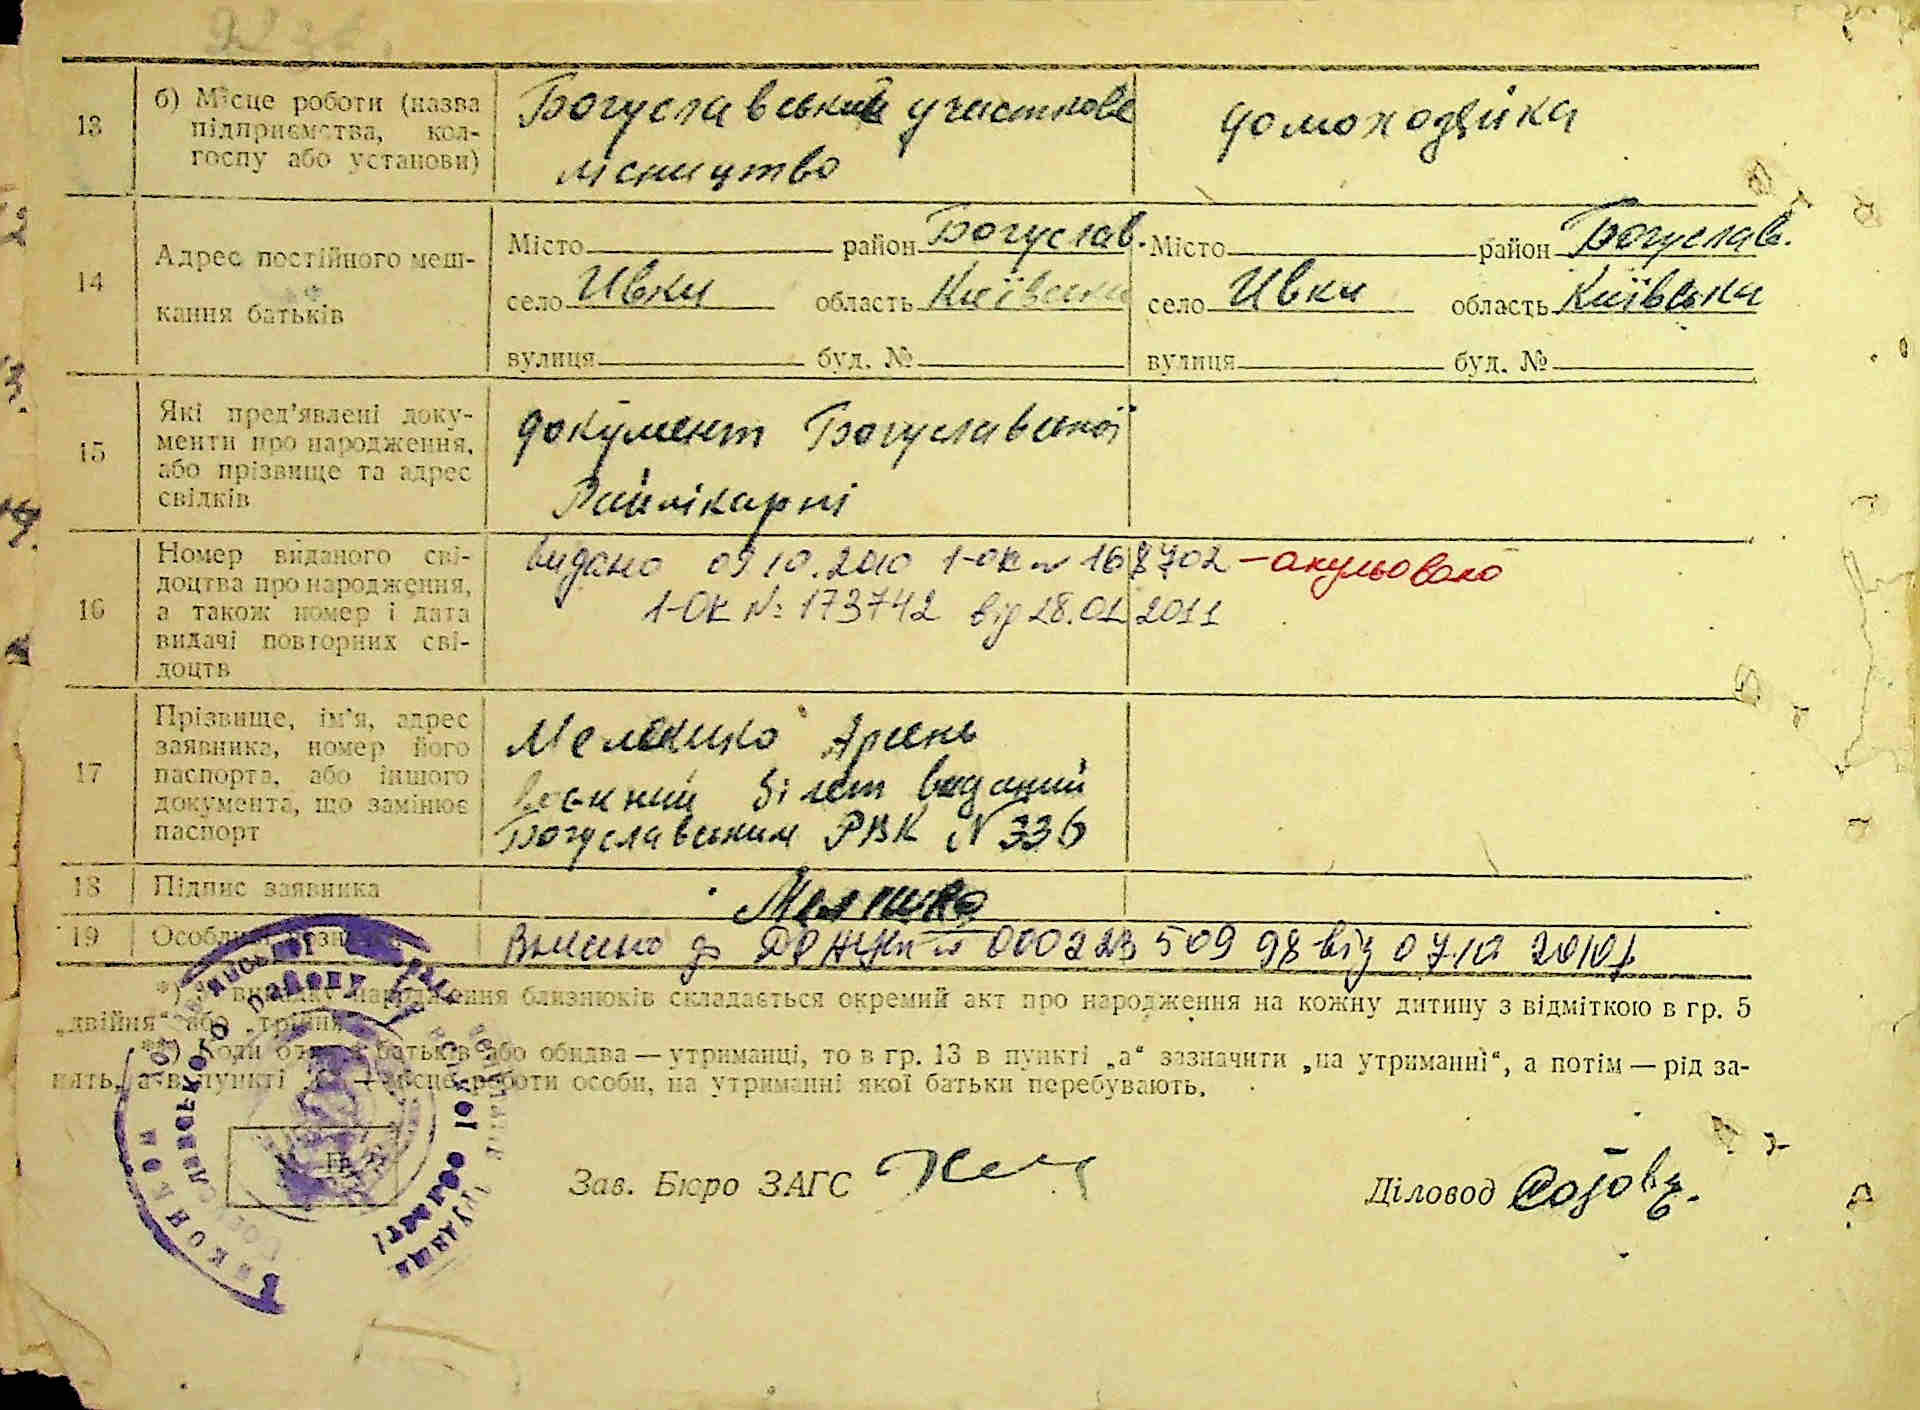 13
б) Місце роботи (назва
підприємства, кол-
госпу або установи)
Богуславський участкове
лісництво
домохозяйка
14
Адрес постійного меш-
кання батьків
Місто район Богуслав. Місто район Богуслав.
село Ивки область Київська село Ивки область Київська
вулиця буд. № вулиця буд. №
15
Які пред'явлені доку-
менти про народження,
або прізвище та адрес
свідків
документ Богуславської
Райлікарні
16
Номер виданого сві-
доцтва про народження,
а також номер і дата
видачі повторних сві-
доцтв
видано 09 10.2010 1-ОК № 168702 - анульовано
1-ОК № 173742 від 28.01 2011
17
Прізвище, ім'я, адрес
заявника, номер його
паспорта, або іншого
документа, що замінює
паспорт
Арсень
білет виданий
Богуславським РВК № 336
18
Підпис заявника
19
Внесено до № 000 223 509 98 від 2010р
*) У випадку народження близнюків складається окремий акт про народження на кожну дитину з відміткою в гр. 5
„двійня" або „трійня"
**) Коли один з батьків або обидва — утриманці, то в гр. 13 в пункті „а" зазначити „на утриманні", а потім — рід за-
нять, а в пункті — місце роботи особи, на утриманні якої батьки перебувають.
Зав. Бюро ЗАГС
Діловод